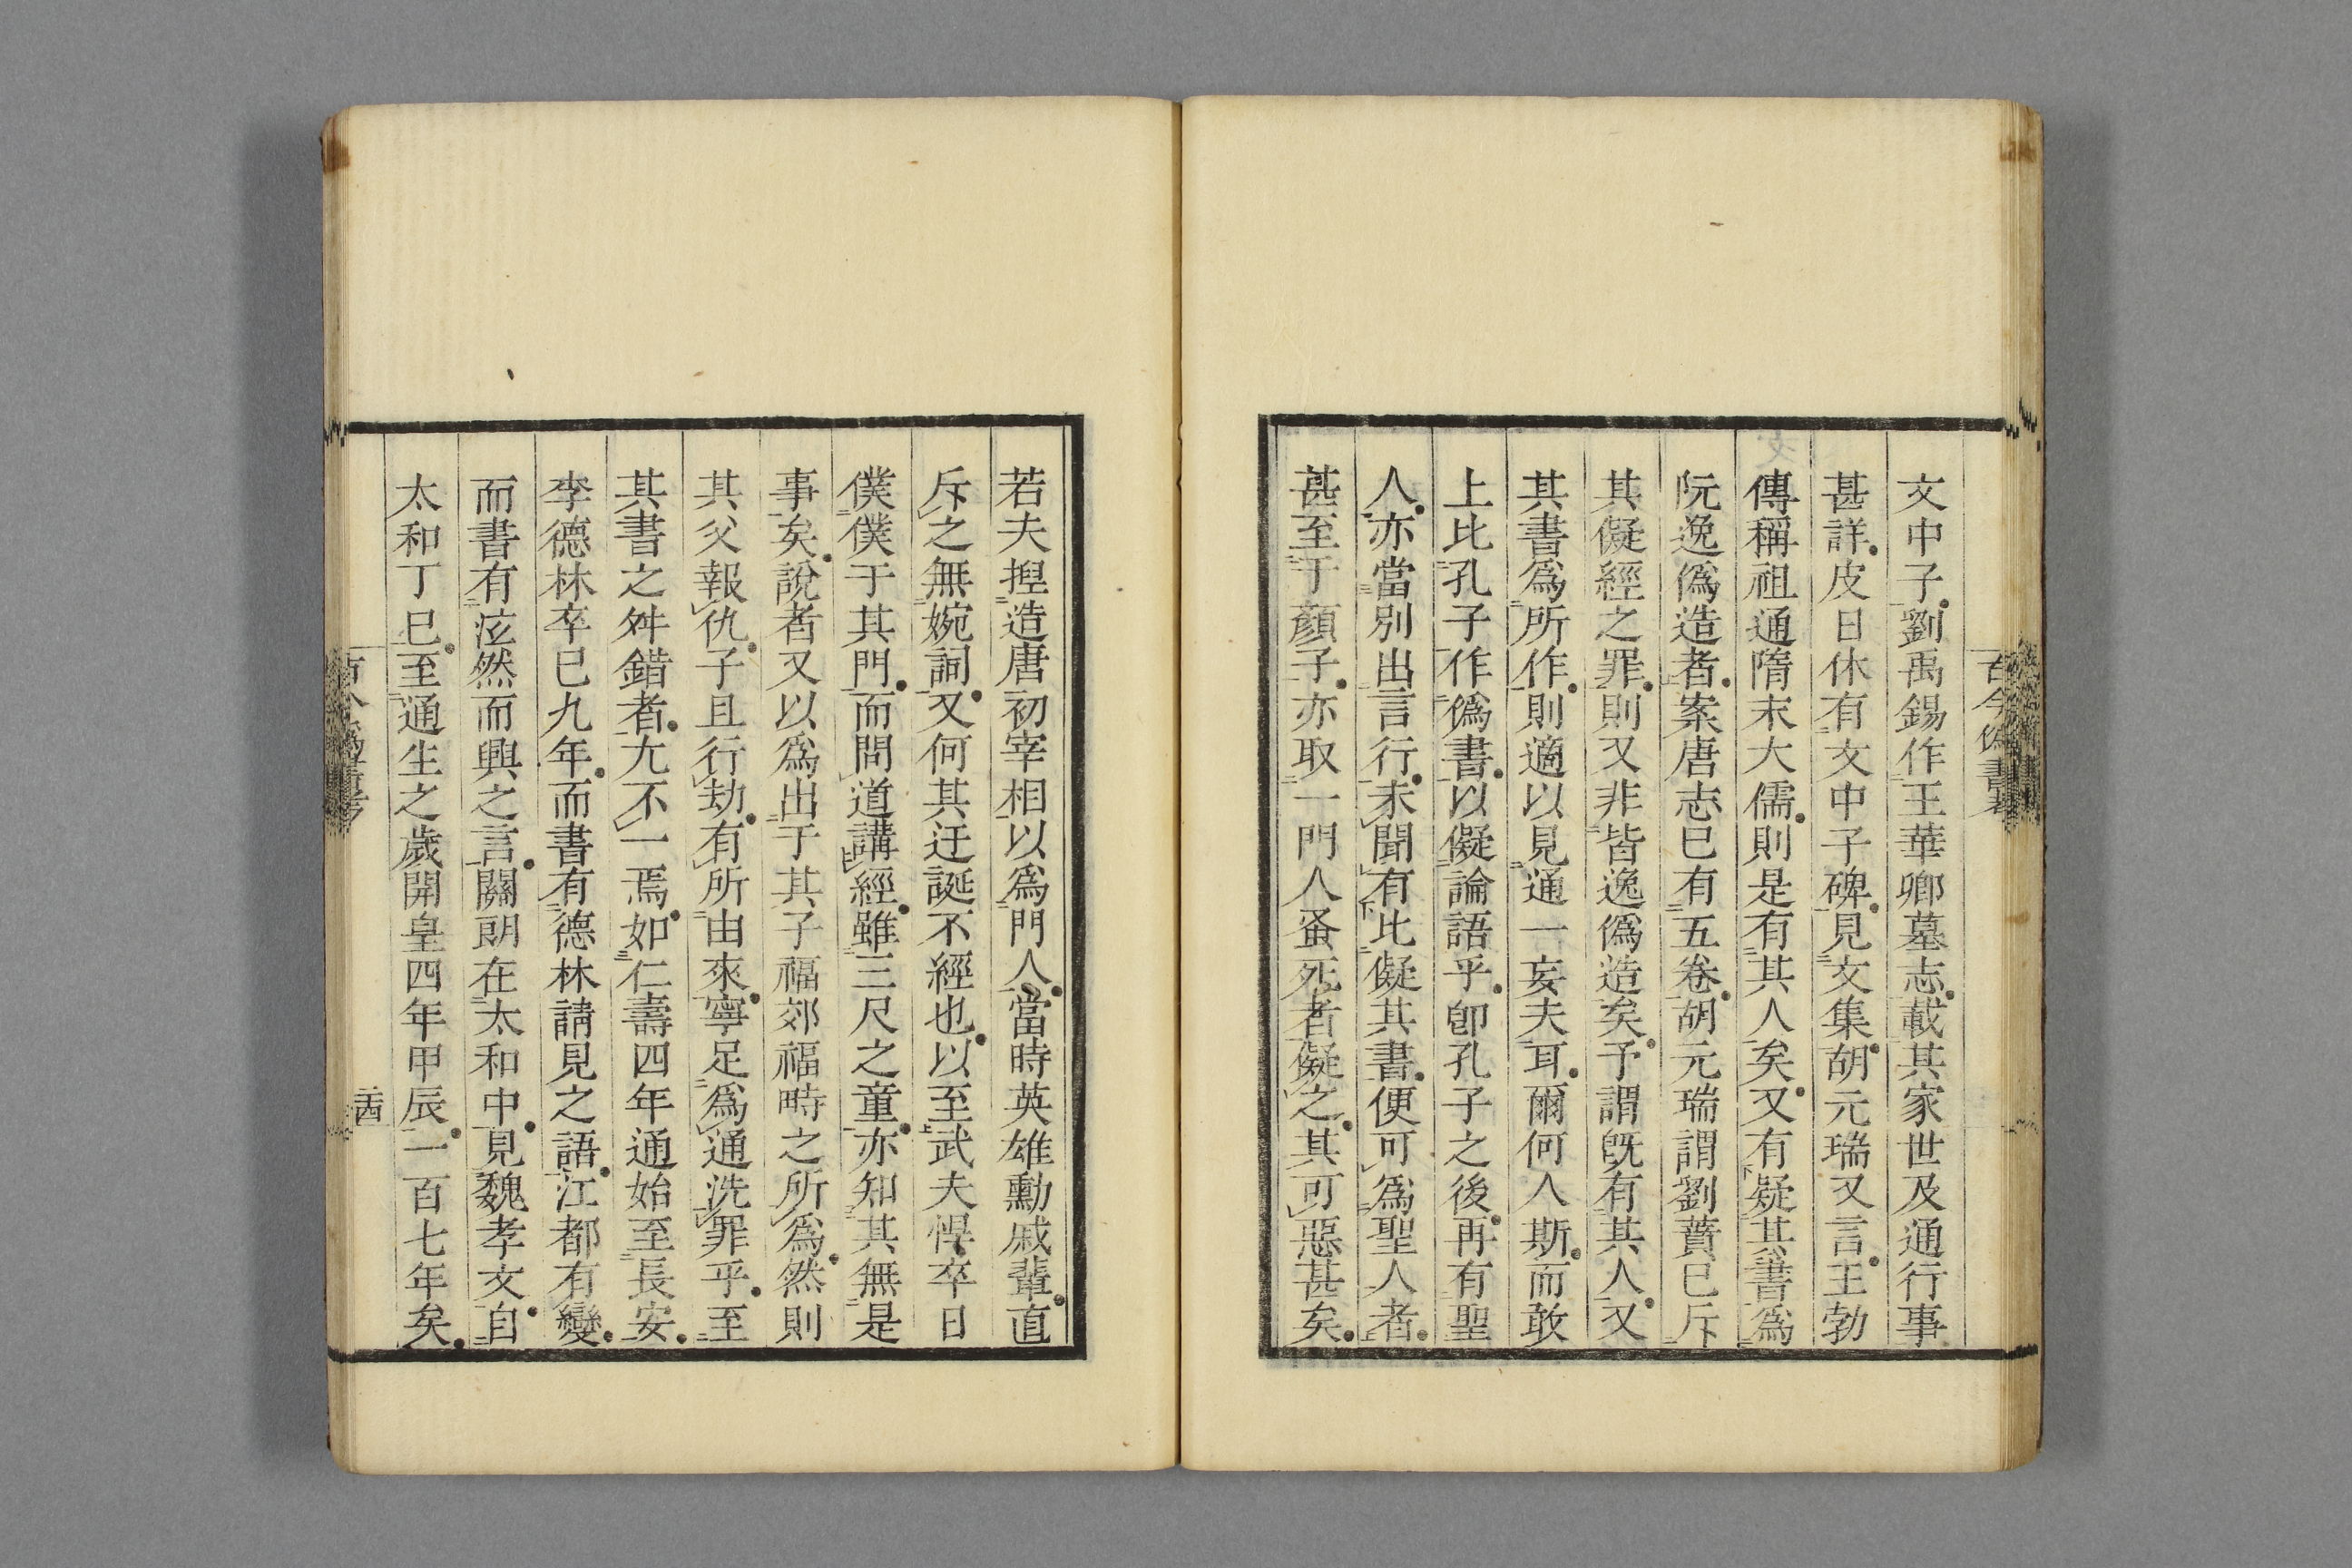 古今偽書考
文中子劉禹錫作王華卿墓志載其家世及通行事
甚詳皮日休有文中子碑見文集胡元瑞又言王勃
傳稱祖通隋末大儒則是有其人矣又有疑其書爲
阮逸僞造者案唐志已有五卷胡元瑞謂劉蕡已斥
其儗經之罪則又非皆逸僞造矣予謂旣有其人又
其書爲所作則適以見通一妄夫耳爾何人斯而敢
上比孔子作僞書以儗論語乎卽孔子之後再有聖
人亦當別出言行未聞有比儗其書便可爲聖人者
甚至于顔子亦取一門人蚤死者儗之其可惡甚矣
若夫揑造唐初宰相以爲門人當時英雄勳戚輩直
斥之無婉詞又何其迂誕不經也以至武夫悍卒日
僕僕于其門而間道講經雖三尺之童亦知其無是
事矣說者又以爲出于其子福郊福畤之所爲然則
其父報仇子且行劫有所由來寧足爲通洗罪乎至
其書之舛錯者尢不一焉如仁壽四年通始至長安
李德林卒已九年而書有德林請見之語江都有變
而書有泫然而興之言關朗在太和中見魏孝文自
太和丁巳至通生之歲開皇四年甲辰一百七年矣